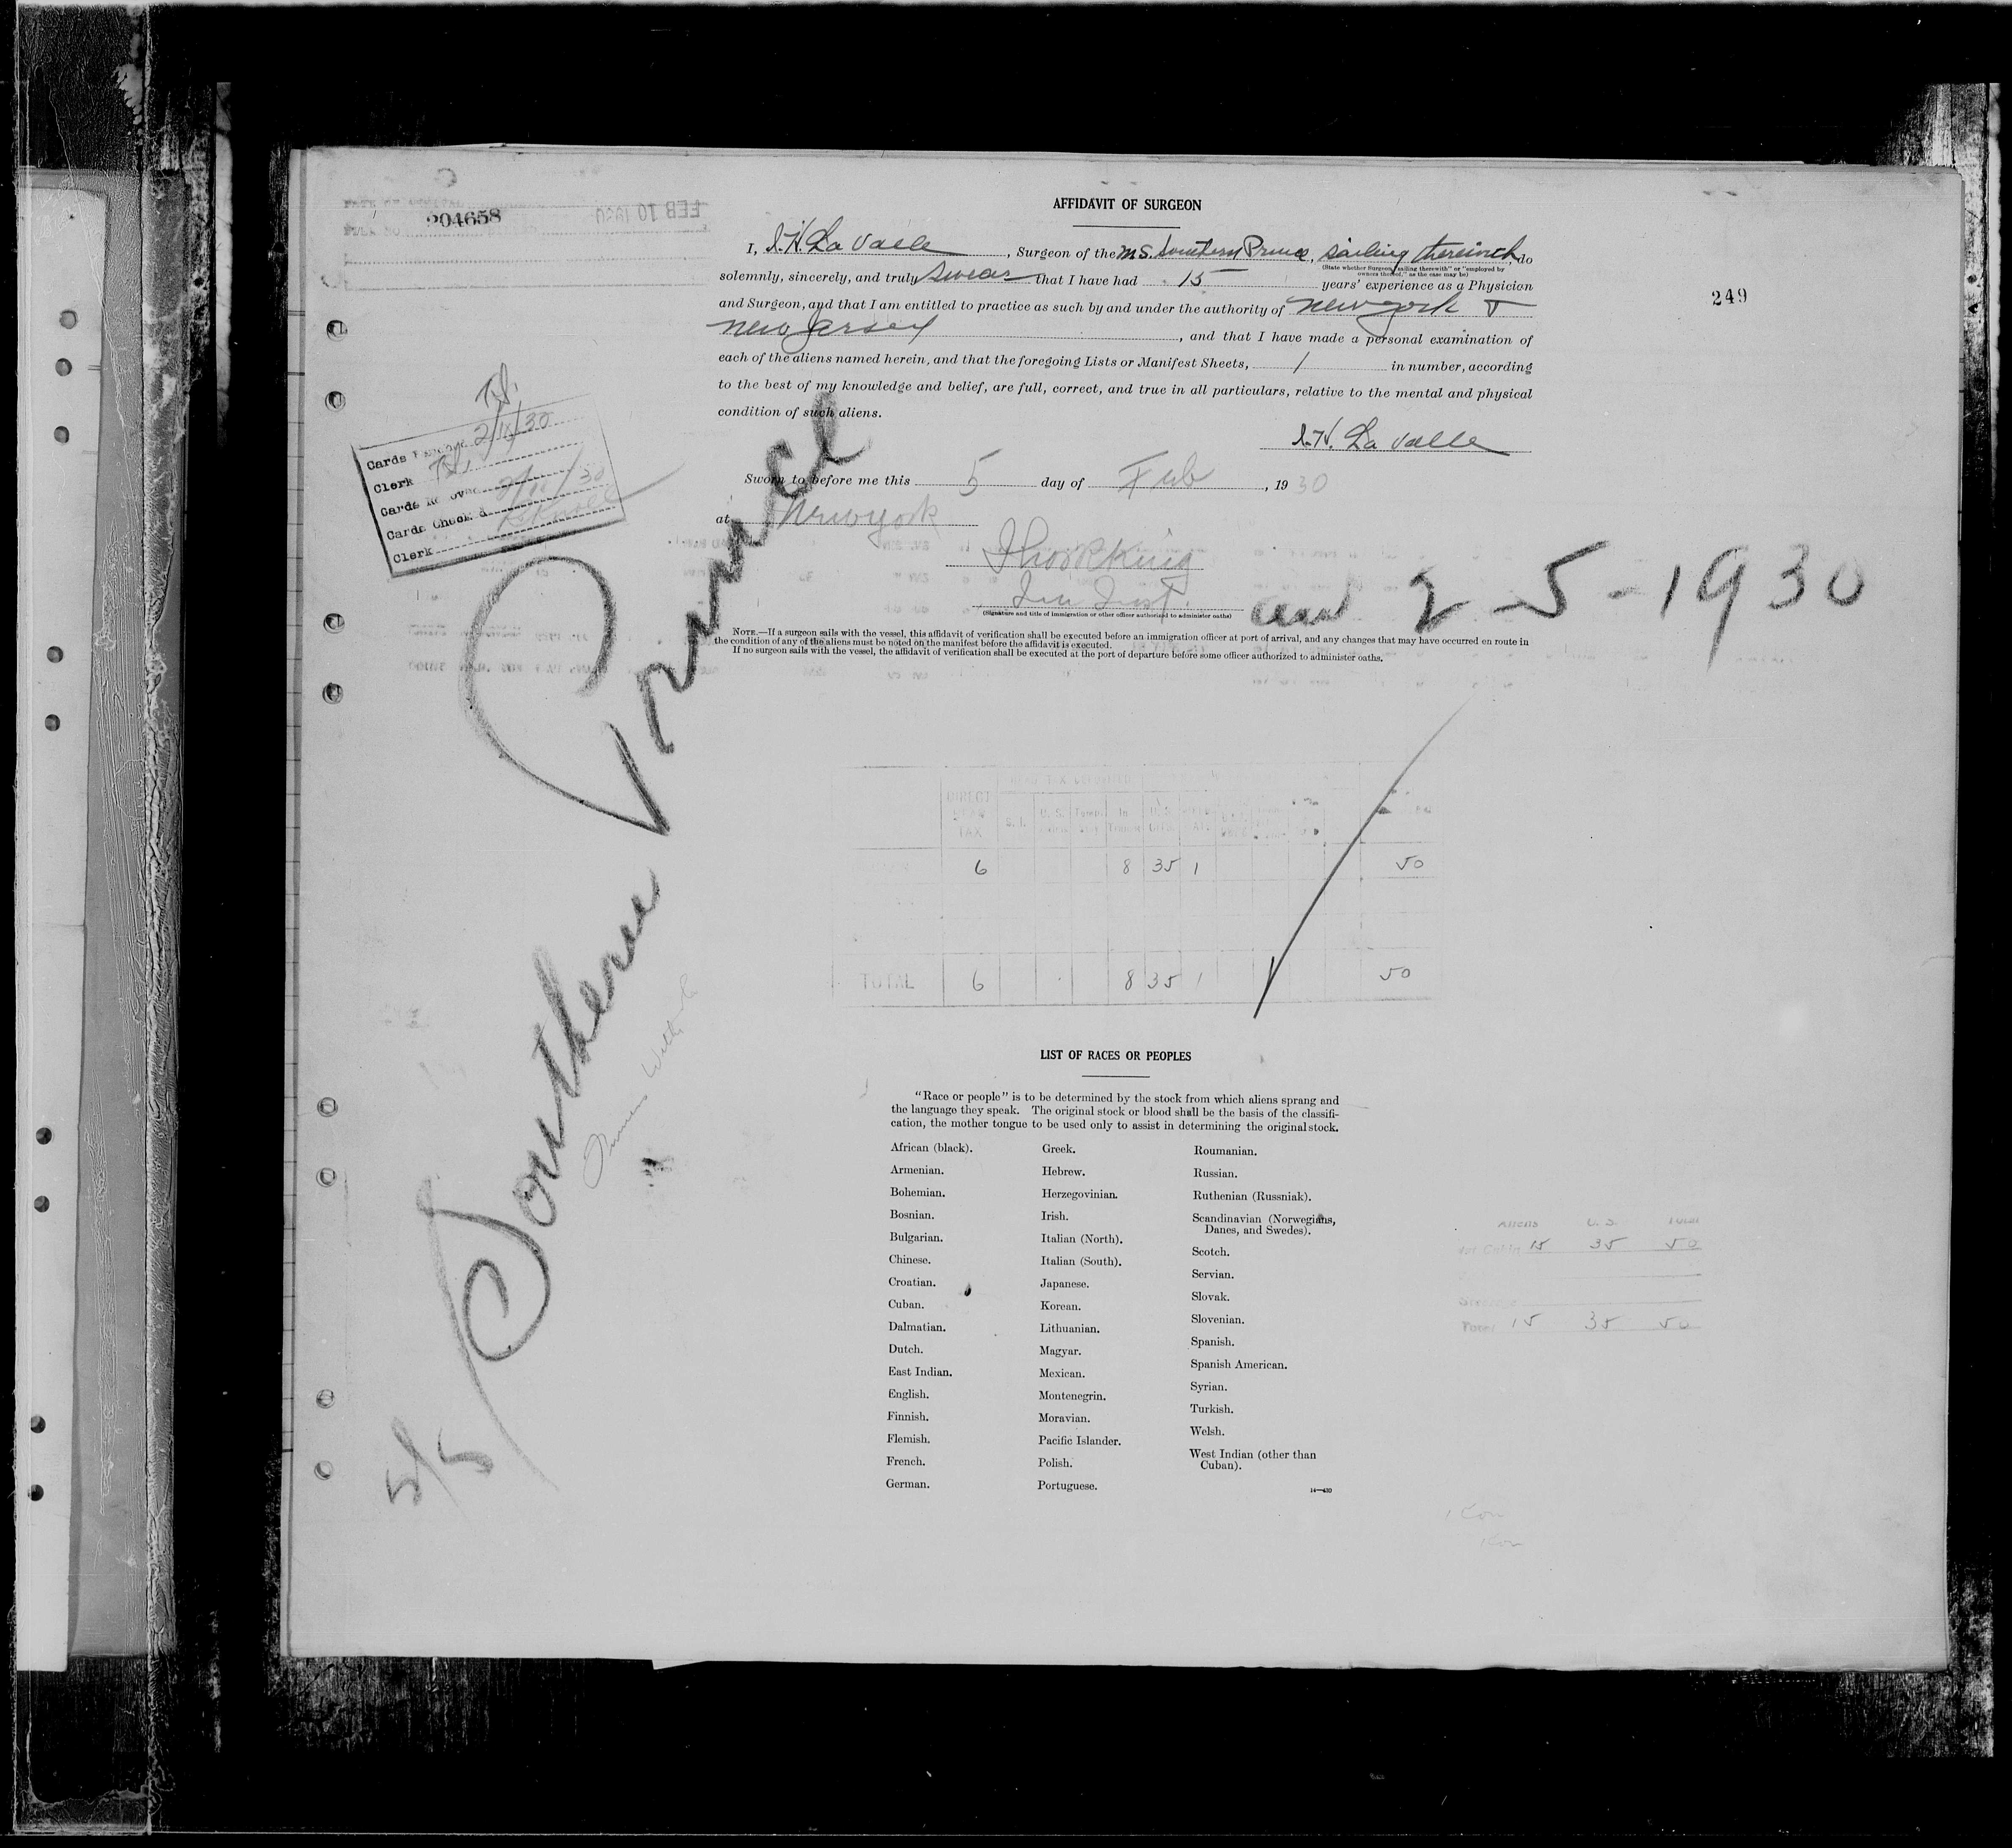 204658
FEB 10 1930
AFFIDAVIT OF SURGEON
249
I, I. H. La Valle, Surgeon of the M.S. Southern Prince, sailing therewith, do
(State whether Surgeon "sailing therewith" or "employed by
owners thereof," as the case may be)
solemnly, sincerely, and truly swear that I have had 15 years' experience as a Physician
and Surgeon, and that I am entitled to practice as such by and under the authority of New York &
New Jersey, and that I have made a personal examination of
each of the aliens named herein, and that the foregoing Lists or Manifest Sheets, 1 in number, according
to the best of my knowledge and belief, are full, correct, and true in all particulars, relative to the mental and physical
condition of such aliens.
I. H. La Valle
Sworn to before me this 5 day of Feb, 1930
at New York
(Signature and title of immigration or other officer authorized to administer oaths)
NOTE.—If a surgeon sails with the vessel, this affidavit of verification shall be executed before an immigration officer at port of arrival, and any changes that may have occurred on route in
the condition of any of the aliens must be noted on the manifest before the affidavit is executed.
If no surgeon sails with the vessel, the affidavit of verification shall be executed at the port of departure before some officer authorized to administer oaths.
Cards 2/11/30
Clerk
Cards
Cards Check'd 2/11/30
Clerk
2-5-1930
Southern Prince
5/5
DIRECT HEAD TAX
S.I. U.S. In Transit
6 8 35 1 50
TOTAL 6 8 35 1 50
LIST OF RACES OR PEOPLES
"Race or people" is to be determined by the stock from which aliens sprang and
the language they speak. The original stock or blood shall be the basis of the classifi-
cation, the mother tongue to be used only to assist in determining the original stock.
African (black).
Armenian.
Bohemian.
Bosnian.
Bulgarian.
Chinese.
Croatian.
Cuban.
Dalmatian.
Dutch.
East Indian.
English.
Finnish.
Flemish.
French.
German.
Greek.
Hebrew.
Herzegovinian.
Irish.
Italian (North).
Italian (South).
Japanese.
Korean.
Lithuanian.
Magyar.
Mexican.
Montenegrin.
Moravian.
Pacific Islander.
Polish.
Portuguese.
Roumanian.
Russian.
Ruthenian (Russniak).
Scandinavian (Norwegians,
Danes, and Swedes).
Scotch.
Servian.
Slovak.
Slovenian.
Spanish.
Spanish American.
Syrian.
Turkish.
Welsh.
West Indian (other than
Cuban).
14—430
Aliens U.S. Total
1st Cabin 15 35 50
Steerage
Total 15 35 50